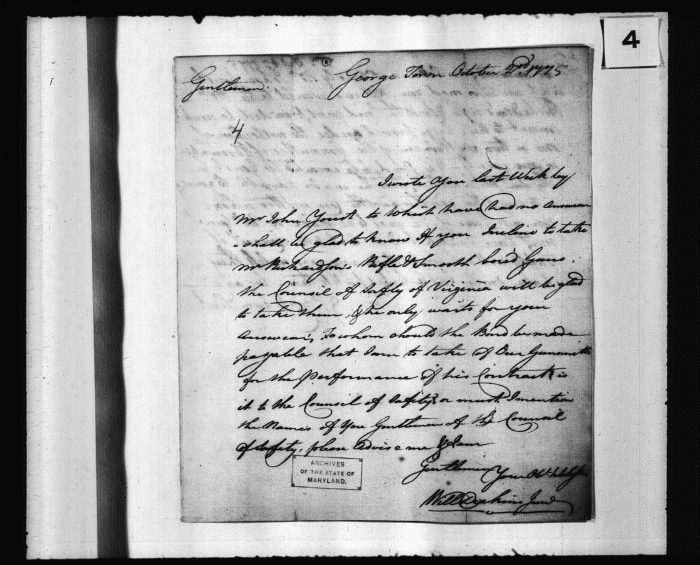 4
George Town October 2nd 1775
Gentlemen
4
I wrote you last Week by
Mr John Youst to which have had no answer
shall be glad to know if you Incline to take
Mr Richardson's Rifle & Smooth bored Guns.
the Council of Safty of Virginia will be glad
to take them, & he only waits for your
answear; To whom should the Bond be made
payable that I am to take of Our Gunsmith
for the Performance of his Contract is
it to the Council of Safety or must I mention
the Names of you Gentlemen of the Council
of Safety, please advise me & I am
Gentlemen Your
Will Deakins Junr
ARCHIVES
OF THE STATE OF
MARYLAND.